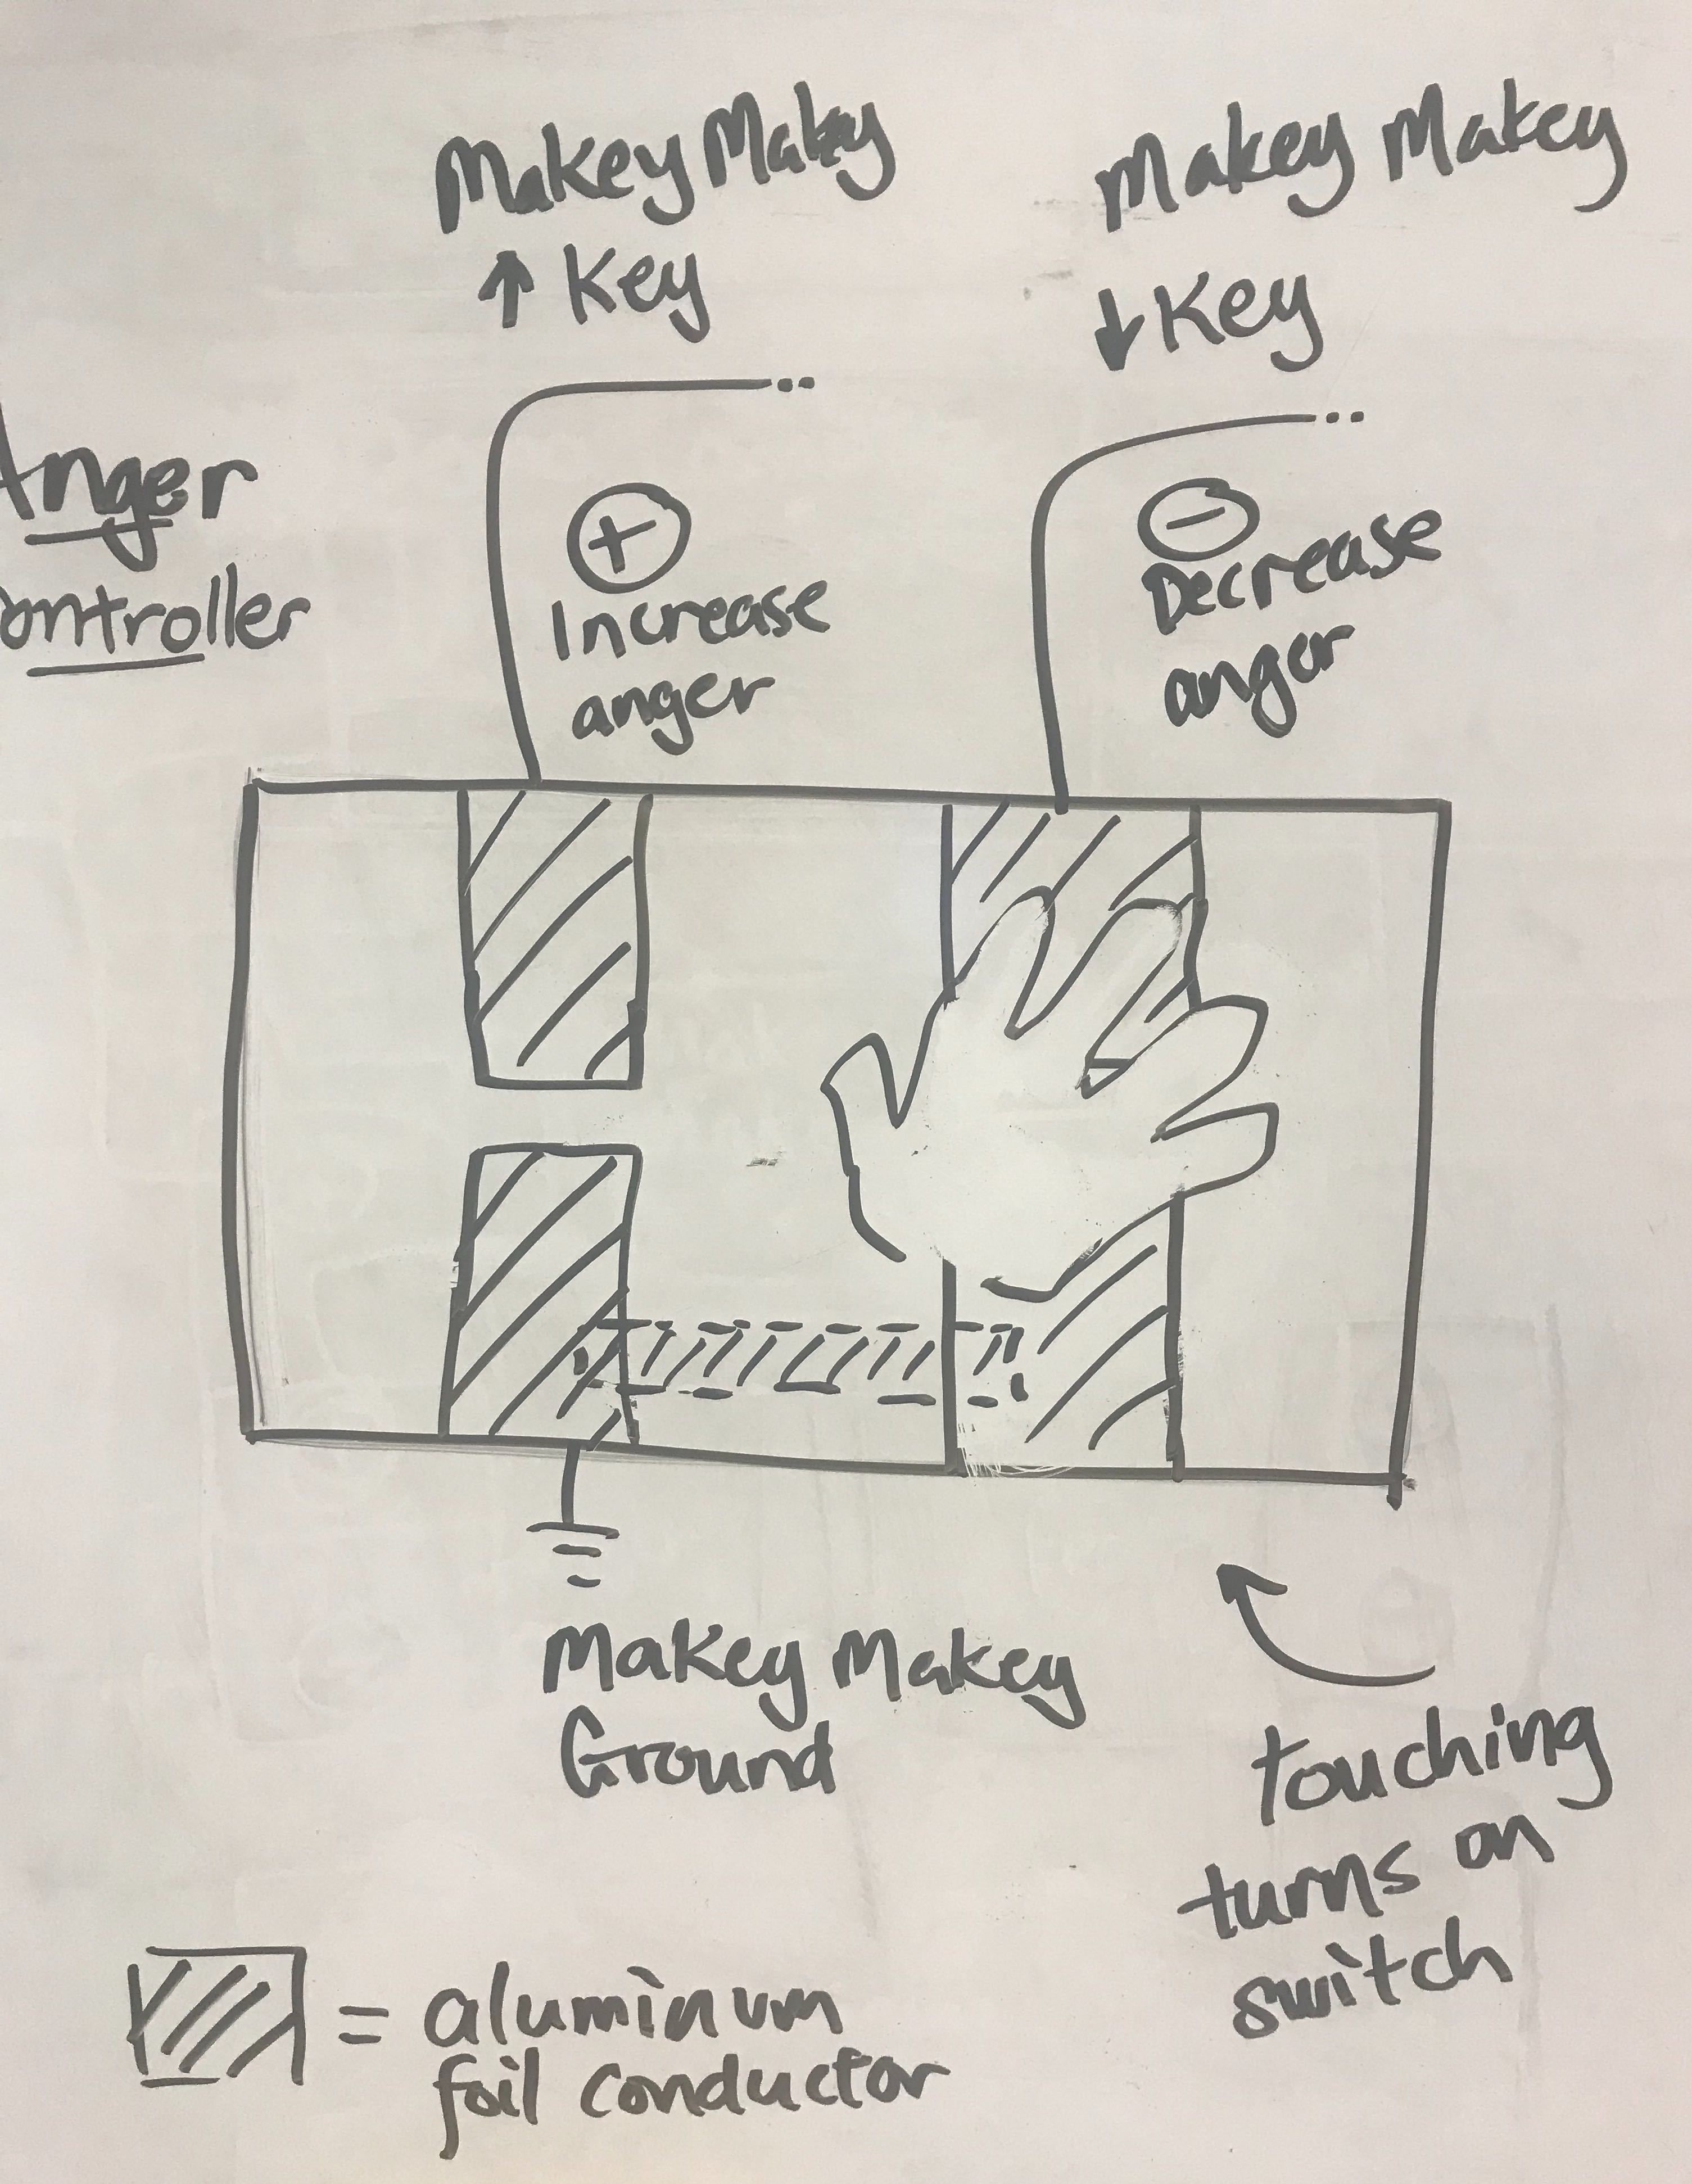 Makey Makey
↑ Key
Makey Makey
↓ Key
Anger
Controller
+
Increase
anger
−
Decrease
anger
Makey Makey
Ground
touching
turns on
switch
= aluminum
foil conductor